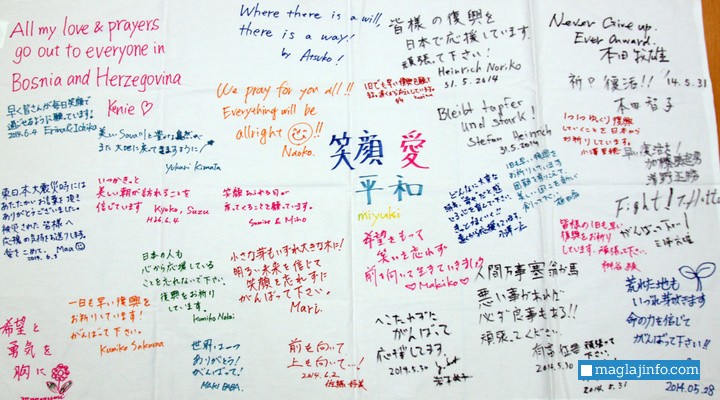 All my love & prayers
go out to everyone in
Bosnia and Herzegovina
Kenie ♡
Where there is a will,
there is a way!
by Atsuko!
皆様の復興を
日本で応援しています。
頑張って下さい!
Heinrich Noriko
31.5.2014
Never Give up.
Ever Onward.
本田
祈り 復活!! '14.5.31
本田 智子
早く皆さんが毎日笑顔で
過ごせるように願っています!
2014.6.4 Erina & Ichika
We pray for you all!!
Everything will be
allright !!
Naoko.
Bleibt tapfer
und Stark!
31.5.2014
Stefan Heinrich
1つ1つゆっくり復興
していくことを日本から
お祈りしています。
早い復活を!
美しい Sava川と
また 大地に
Yukari Kimata
笑顔 愛
平和
miyuki
東日本大震災時には
あたたかいお言葉を頂き
ありがとうございました。
被災された皆様へ
応援の気持ちを送ります。
愛をこめて。Maa ☺
2014.6.3
いつかきっと
美しい朝が訪れることを
信じています
Kyoko, Suzu
H26.6.4
笑顔あふれる日が
戻ってくることを願っています。
Sumire & Miho
Fight!
がんばって下さい!
皆様の1日も早い
復興をお祈り
しています。頑張って下さい。
日本の人も
心から応援している
ことを忘れないで下さい。
復興をお祈り
しています。
Kumiko Nobai
小さな芽もいずれ大きな木に!
明るい未来を信じて
笑顔を忘れずに
がんばって下さい。
Mari.
希望をもって
笑いを忘れず
前を向いて生きていきましょう
♡Makiko♡
人間万事塞翁が馬
悪い事があれば
必ず良事もある!!
頑張ってください。
2014.5.30
荒れた地も
いつれ芽吹きます
命の力を信じて
がんばって下さい!!
2014.05.28
一日も早い復興を
お祈りしています!
がんばって下さい。
Kumiko Sakuma
希望と
勇気を
胸に
世界は一つ
ありがとう!
がんばって!
MAKI BABA.
前を向いて
上も向いて…!
2014.6.2
へこたれずに
がんばって
応援してます。
2014.5.30
頑張って
下さい。
2014.5.31
maglajinfo.com